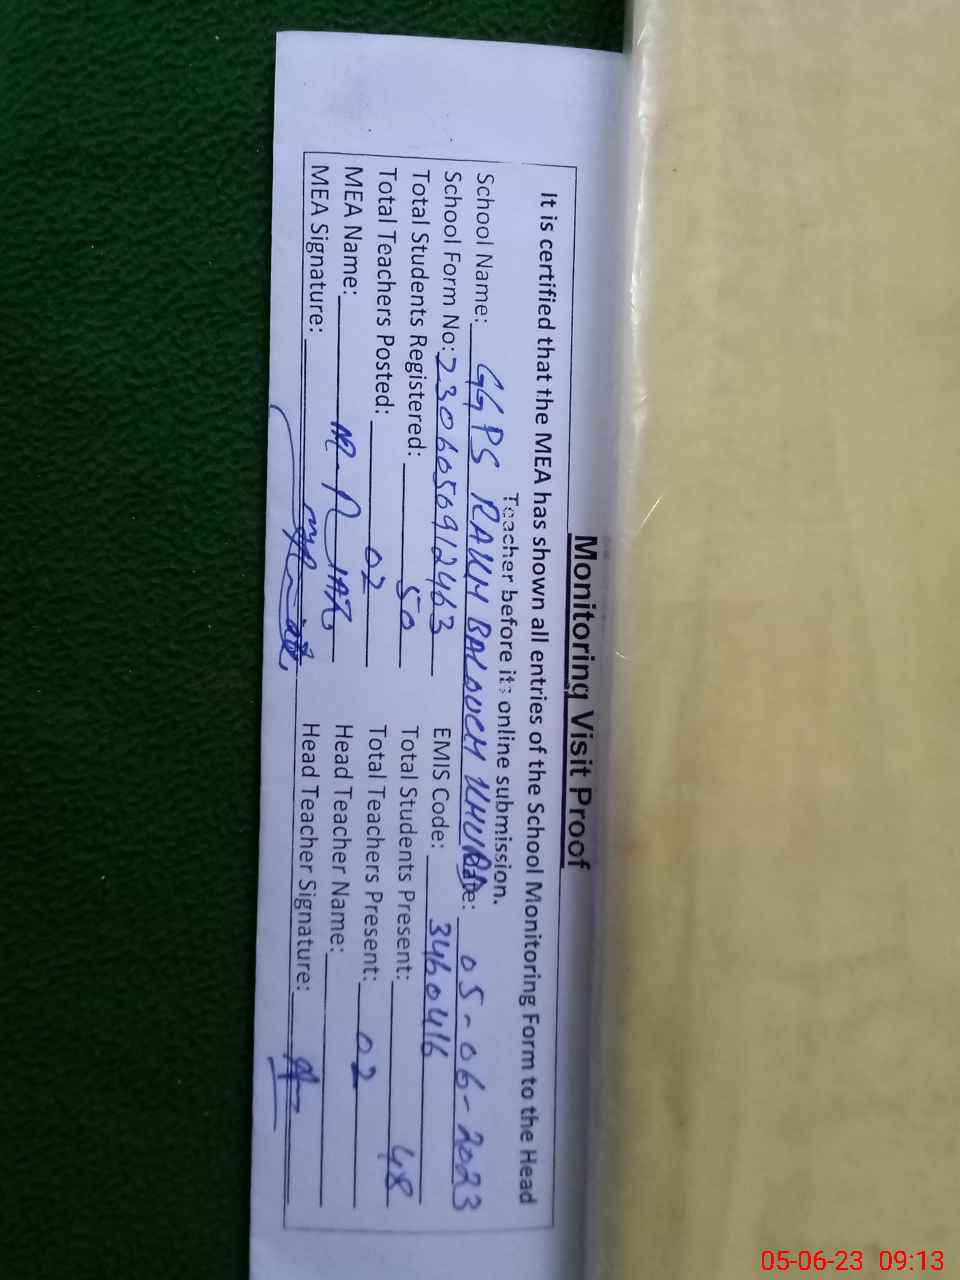 Monitoring Visit Proof
It is certified that the MEA has shown all entries of the School Monitoring Form to the Head
Teacher before its online submission.
School Name: GGPS RAKH BALOUCH KHURD Date: 05-06-2023
School Form No: 2306056912463 EMIS Code: 3460416
Total Students Registered: 50 Total Students Present: 48
Total Teachers Posted: 02 Total Teachers Present: 02
MEA Name: Head Teacher Name:
MEA Signature: Head Teacher Signature:
05-06-23 09:13